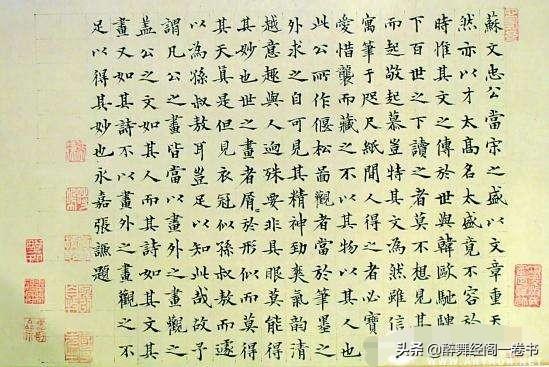 蘇文忠公當宋之盛以文章重天
然亦以才太高名太盛竟不容於
時惟其文之傳於世與韓歐馳騁
下百世之下讀之者莫不想見其
而起敬起慕豈特其文為然雖信
寓筆于咫尺紙間人得之者必寶
愛惜襲而藏之不以其物以其人也
此公所作偃松圖觀者當於筆墨之
外求之自可見其精神勁氣韻清
越意趣與人迥殊要非具眼莫能得
其妙也世之畫者屑於形似莫得
其天真是但見衣冠似孫叔敖而遽
以為孫叔敖耳豈足以知此哉故予
謂凡公之畫皆當以畫外之畫觀之
盖公之文如其人而其詩如其文其
畫又如其詩不以畫外之畫觀之不
足以得其妙也永嘉張謙題
头条 @醉舞经阁一卷书